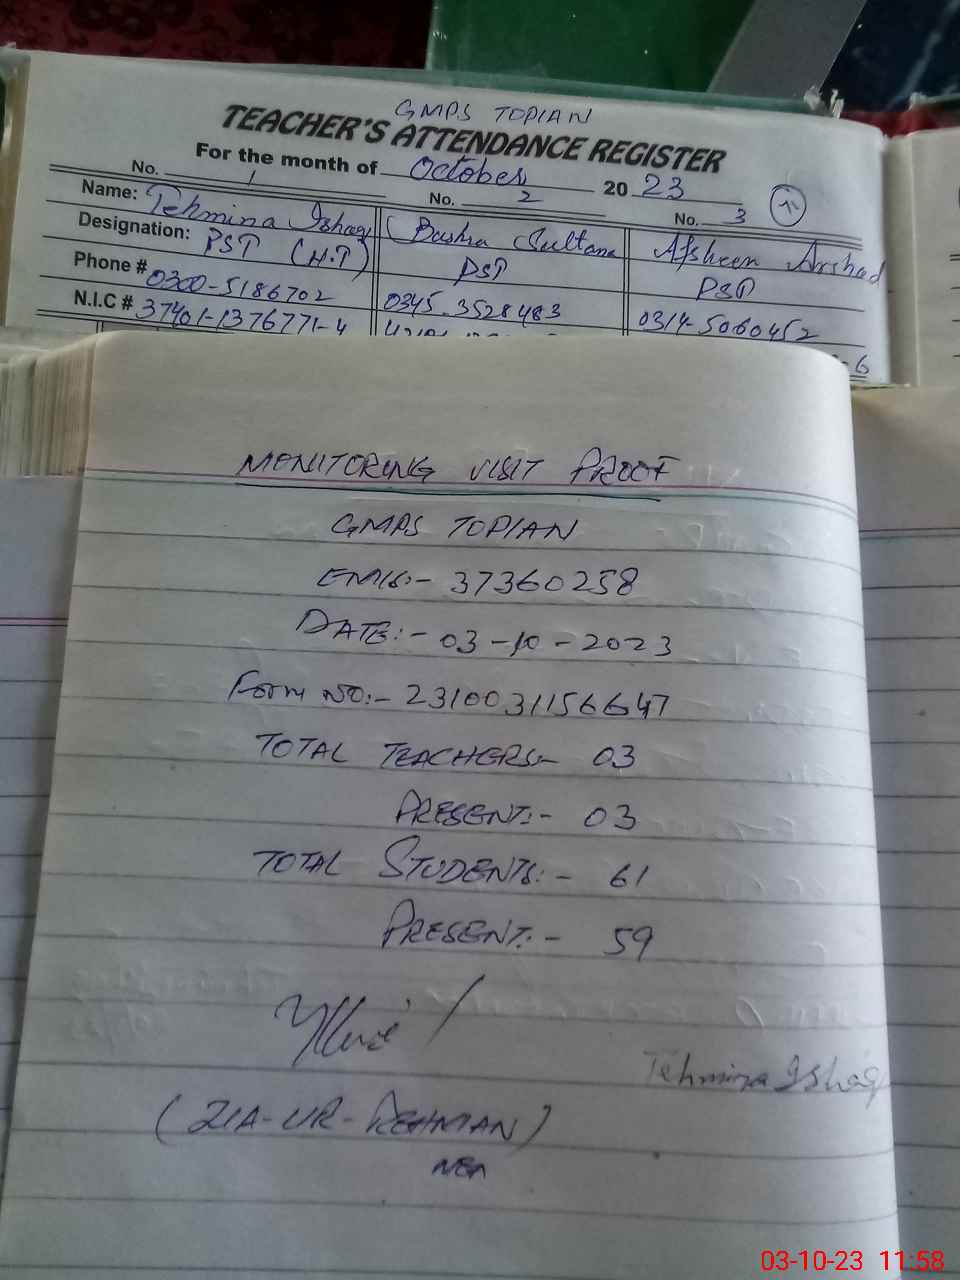 GMPS TOPIAN
TEACHER'S ATTENDANCE REGISTER
For the month of October 2023
No. 1 No. 2 No. 3
Name: Tehmina Ishaq Bushra Sultana Afsheen Arshad
Designation: PST (H.T) PST PST
Phone # 0300-5186702 0345-3528483 0314-5060452
N.I.C # 37401-1376771-4
-6
MONITORING VISIT PROOF
GMPS TOPIAN
EMIS:- 37360258
DATE:- 03-10-2023
Form NO:- 2310031156647
TOTAL TEACHERS:- 03
PRESENT:- 03
TOTAL STUDENTS:- 61
PRESENT:- 59
Tehmina Ishaq
(ZIA-UR-REHMAN)
MEA
03-10-23 11:58